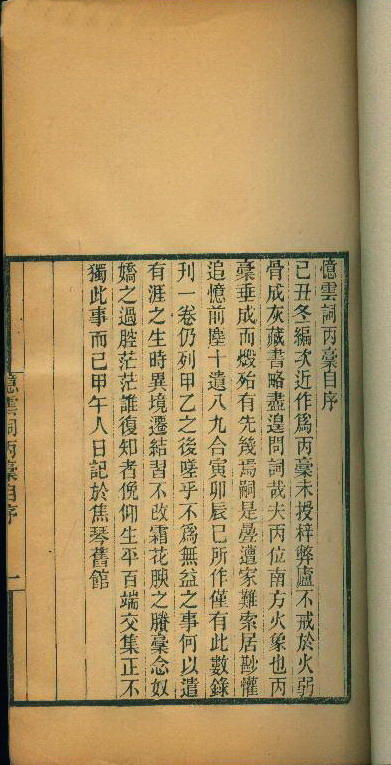 憶雲詞丙稾自序
己丑冬三編次近作爲丙稾未授梓弊廬不戒於火弜
骨成灰藏書略盡遑問詞哉夫丙位南方火象也丙
稾垂成而燬殆有先幾焉嗣是疊遭家難索居尠懽
追憶前塵十遺八九合寅卯辰巳所作僅有此數錄
刊一卷仍列甲乙之後嗟乎不爲無益之事何以遣
有涯之生時異境遷結習不改霜花腴之賸稾念奴
嬌之過腔茫茫誰復知者俛仰生平百端交集正不
獨此事而已甲午人日記於焦琴舊館
憶雲詞丙稾自序 一